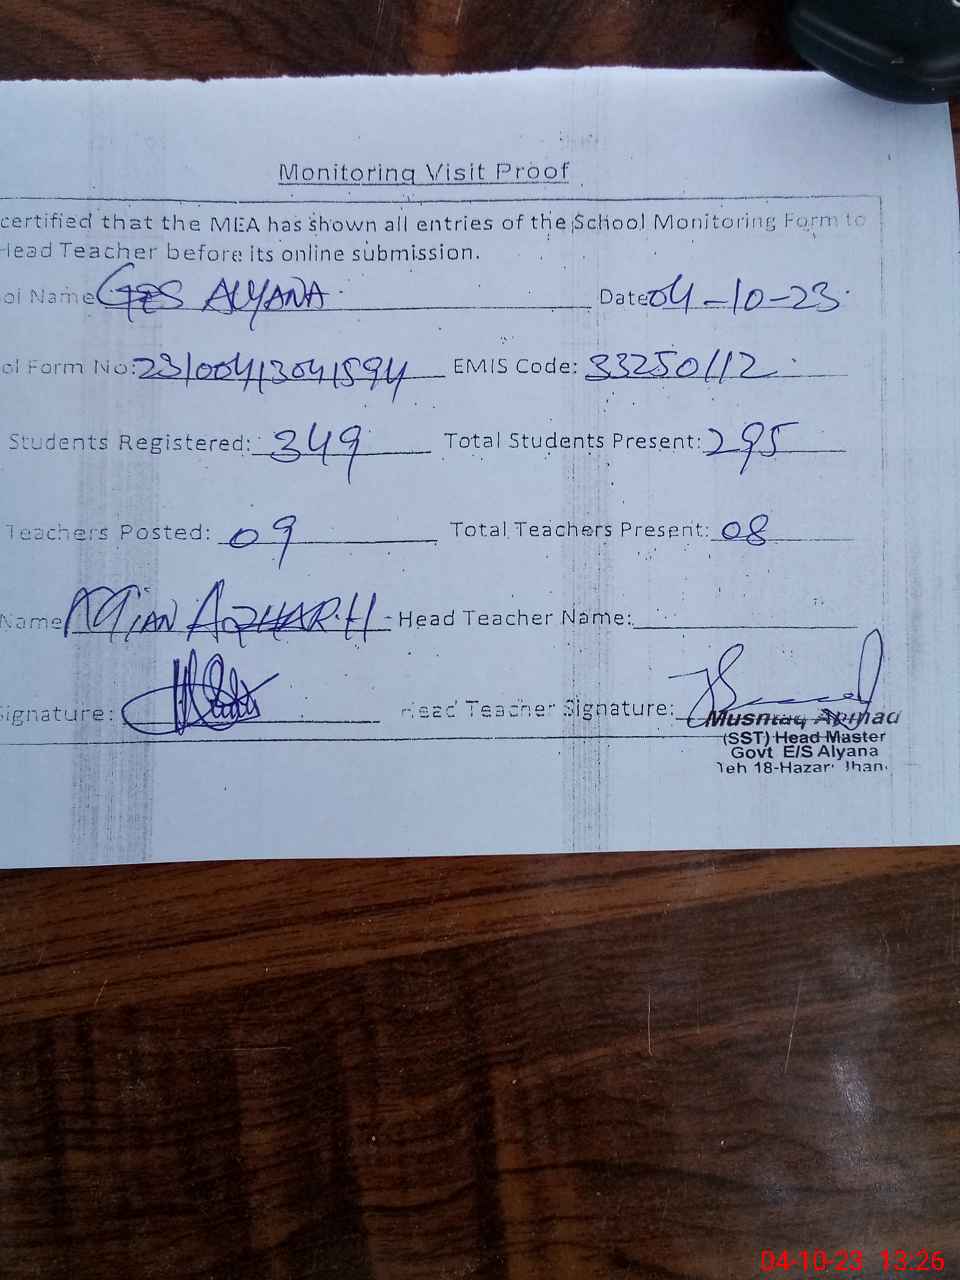 Monitoring Visit Proof
certified that the MEA has shown all entries of the School Monitoring Form to
Head Teacher before its online submission.
ol Name GES ALYANA Date 04-10-23
ol Form No: 23100413041594 EMIS Code: 33250112
Students Registered: 349 Total Students Present: 295
Teachers Posted: 09 Total Teachers Present: 08
Name Head Teacher Name:
ignature: Head Teacher Signature:
Mushtaq Ahmad
(SST) Head Master
Govt E/S Alyana
Teh 18-Hazari Jhan
04-10-23 13:26